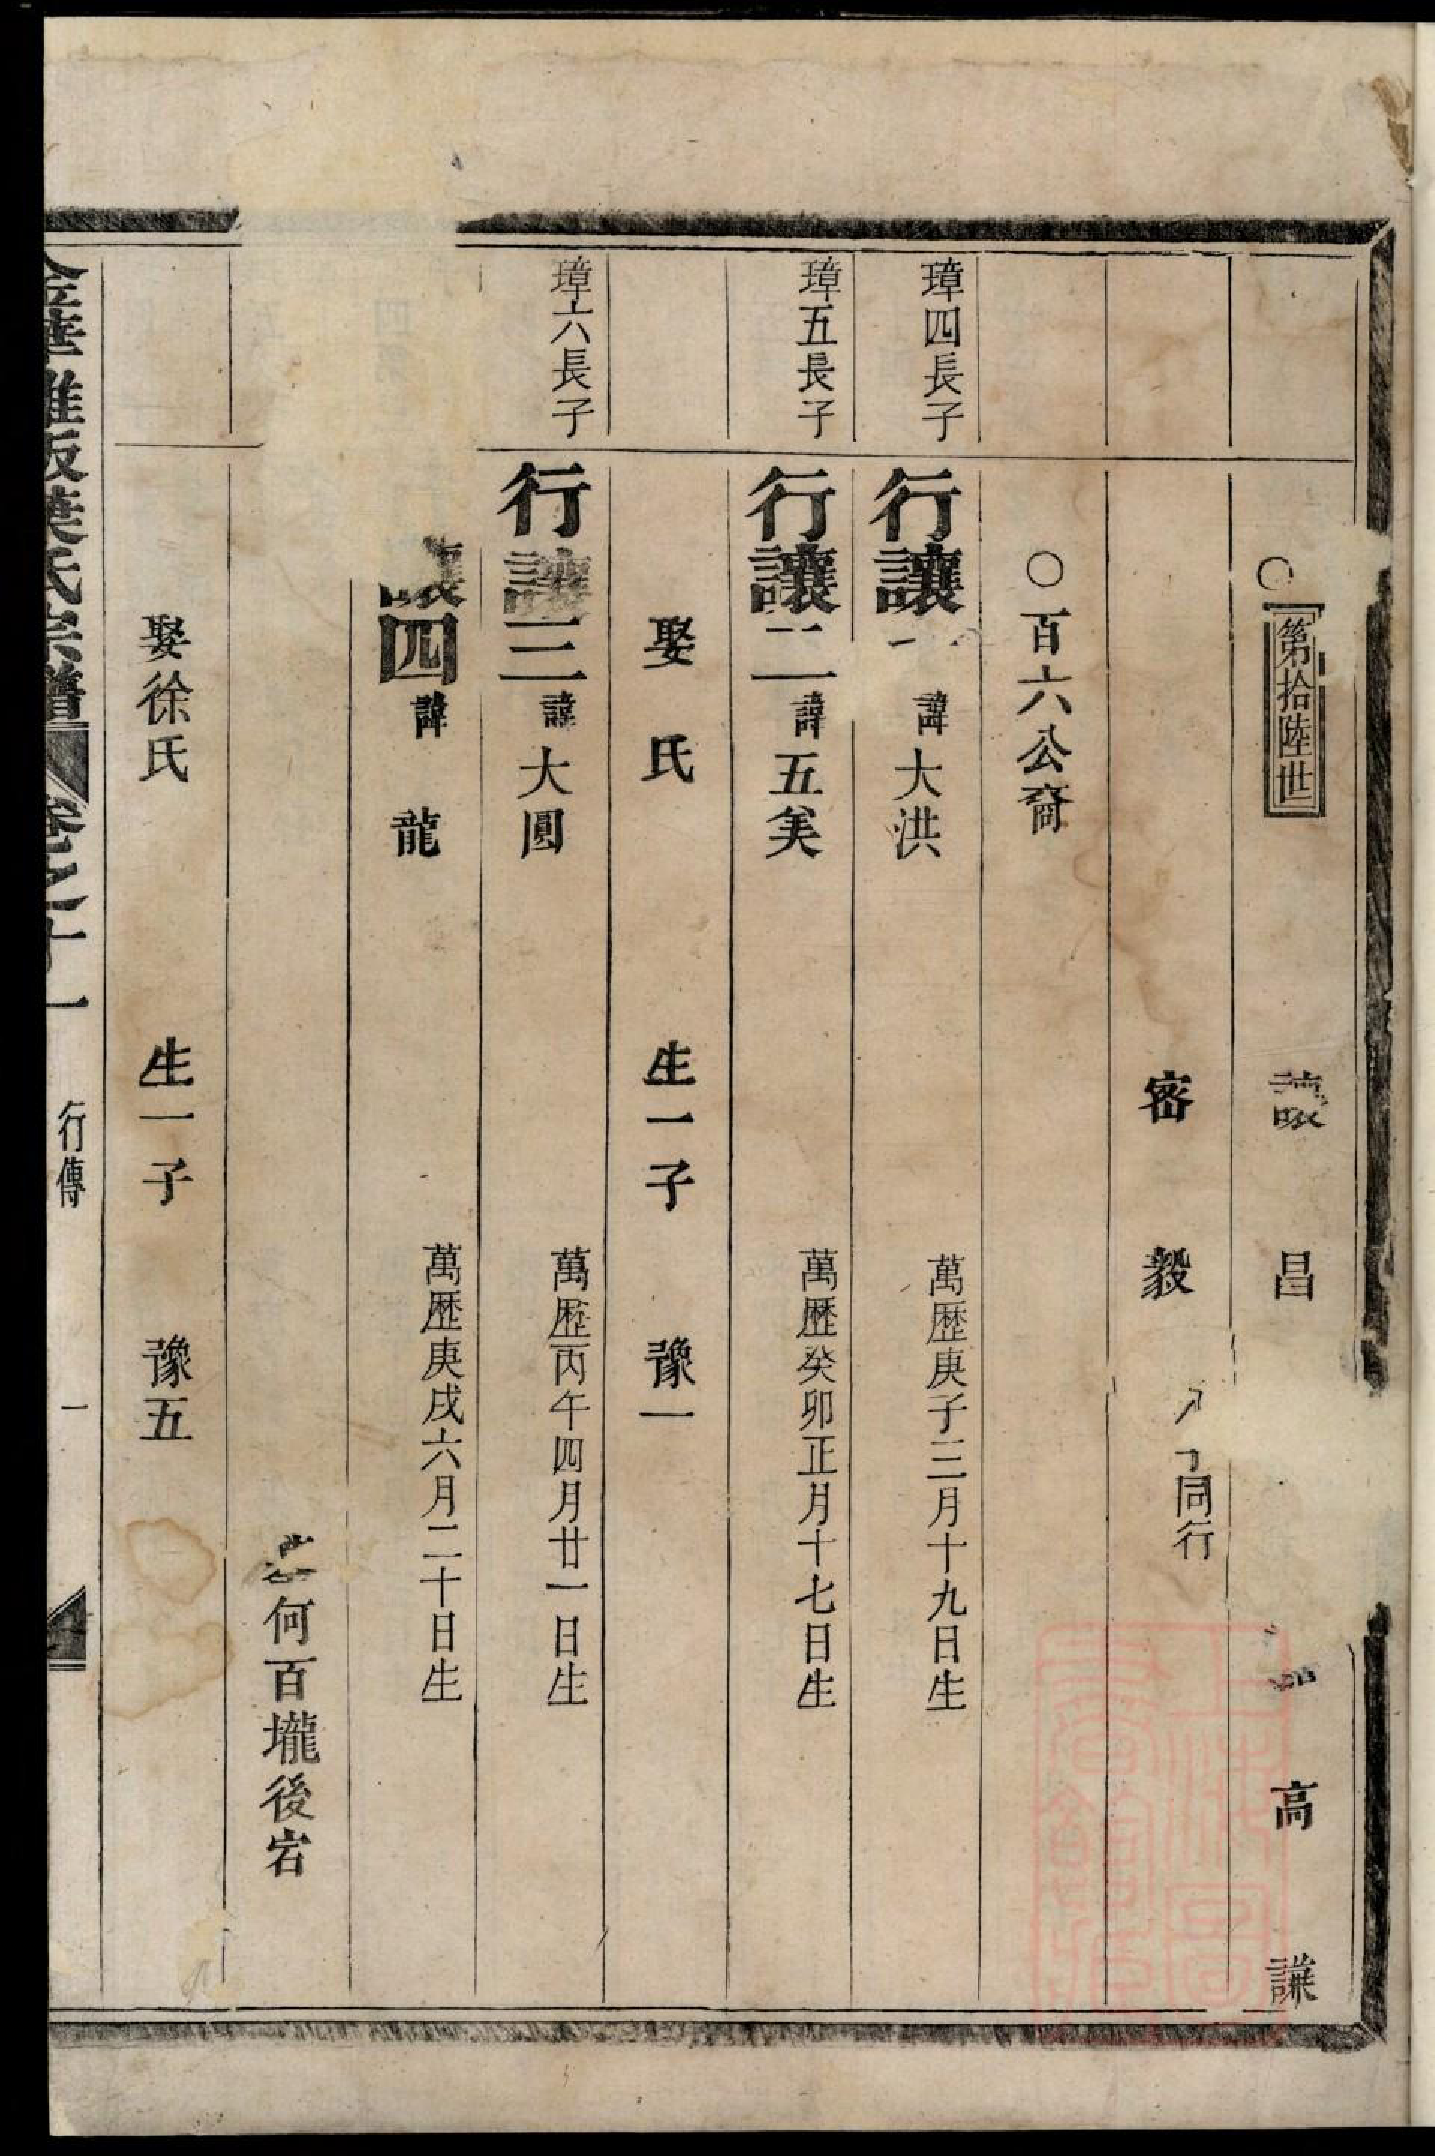 ○第拾陸世 讓 昌 高 謙
密 毅 同行
○百六公裔
璋四長子 行讓一 諱大洪 萬歷庚子三月十九日生
璋五長子 行讓二 諱五美 萬歷癸卯正月十七日生
娶 氏 生一子 豫一
璋六長子 行讓三 諱大圓 萬歷丙午四月廿一日生
讓四 諱 龍 萬歷庚戌六月二十日生
何百壠後宕
娶徐氏 生一子 豫五
金華 葉氏宗譜 卷之十一 行傳 一